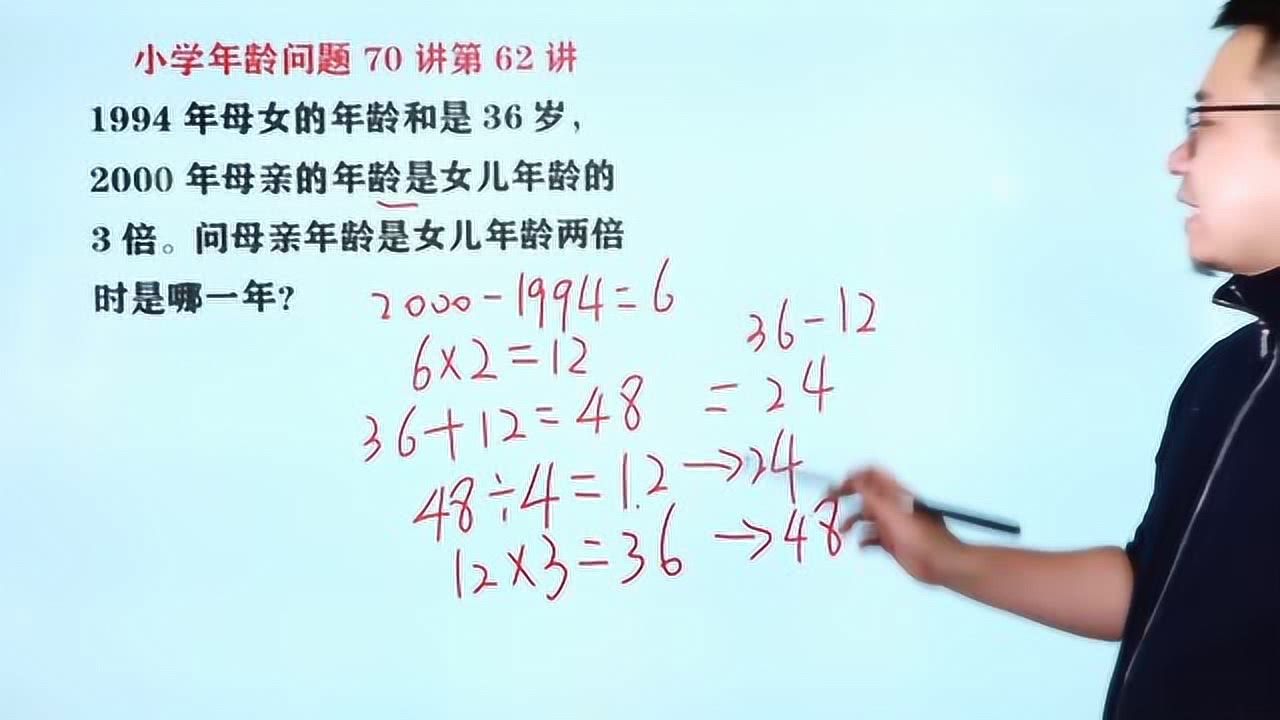 小学年龄问题 70 讲第 62 讲
1994 年母女的年龄和是 36 岁，
2000 年母亲的年龄是女儿年龄的
3 倍。问母亲年龄是女儿年龄两倍
时是哪一年？
2000-1994=6
6×2=12
36+12=48
48÷4=12→24
12×3=36→48
36-12
=24